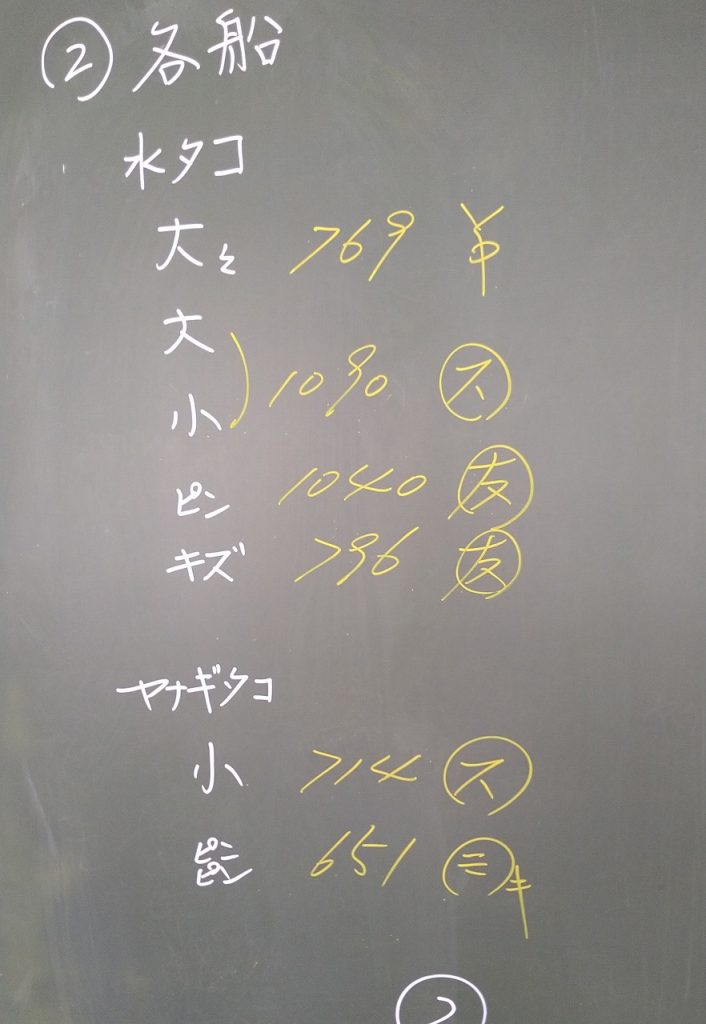 ② 各船
水タコ
大々 769
大
小 1090 ㋜
ピン 1040 友
キズ 796 友
ヤナギタコ
小 714 ㋜
ピンピン 651 ㊁キ
2